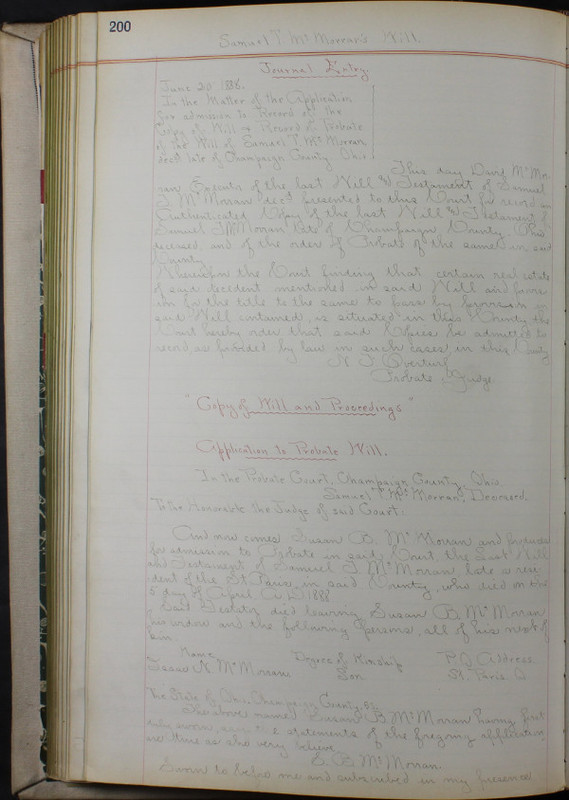 200
Samuel T. McMorran's Will.
Journal Entry.
June 20 1888.
In the Matter of the Application
for admission to Record of the
Copy of Will & Record of Probate
of the Will of Samuel T. McMorran
decd late of Champaign County Ohio
This day David McMor-
ran Executor of the last Will & Testament of Samuel
T. McMorran decd presented to this Court for record an
Authenticated Copy of the last Will & Testament of
Samuel T. McMorran late of Champaign County, Ohio
deceased, and of the order of Probate of the same in said
County
Whereupon the Court finding that certain real estate
of said decedent mentioned in said Will and
for the title to the same to pass by
said Will contained, is situated in this County the
Court hereby order that said Copies be admitted to
record as provided by law in such cases, in this County
Overturf
Probate Judge
"Copy of Will and Proceedings"
Application to Probate Will.
In the Probate Court, Champaign County, Ohio.
Samuel T. McMorran, Deceased.
To the Honorable the Judge of said Court:
And now comes Susan B. McMorran and produces
for admission to Probate in said Court, the Last Will
and Testament of Samuel T. McMorran late a resi-
dent of the St Paris, in said County, who died on the
5 day of April A.D. 1888
Said Testator died leaving Susan B. McMorran
his widow and the following persons, all of his next of
kin
Name Degree of Kinship P.O. Address
Isaac N. McMorran Son St. Paris O.
The State of Ohio, Champaign County, ss.
The above named Susan B. McMorran having first
duly sworn, says the statements of the foregoing application
are true as she verily believe
S. B. McMorran.
Sworn to before me and subscribed in my presence